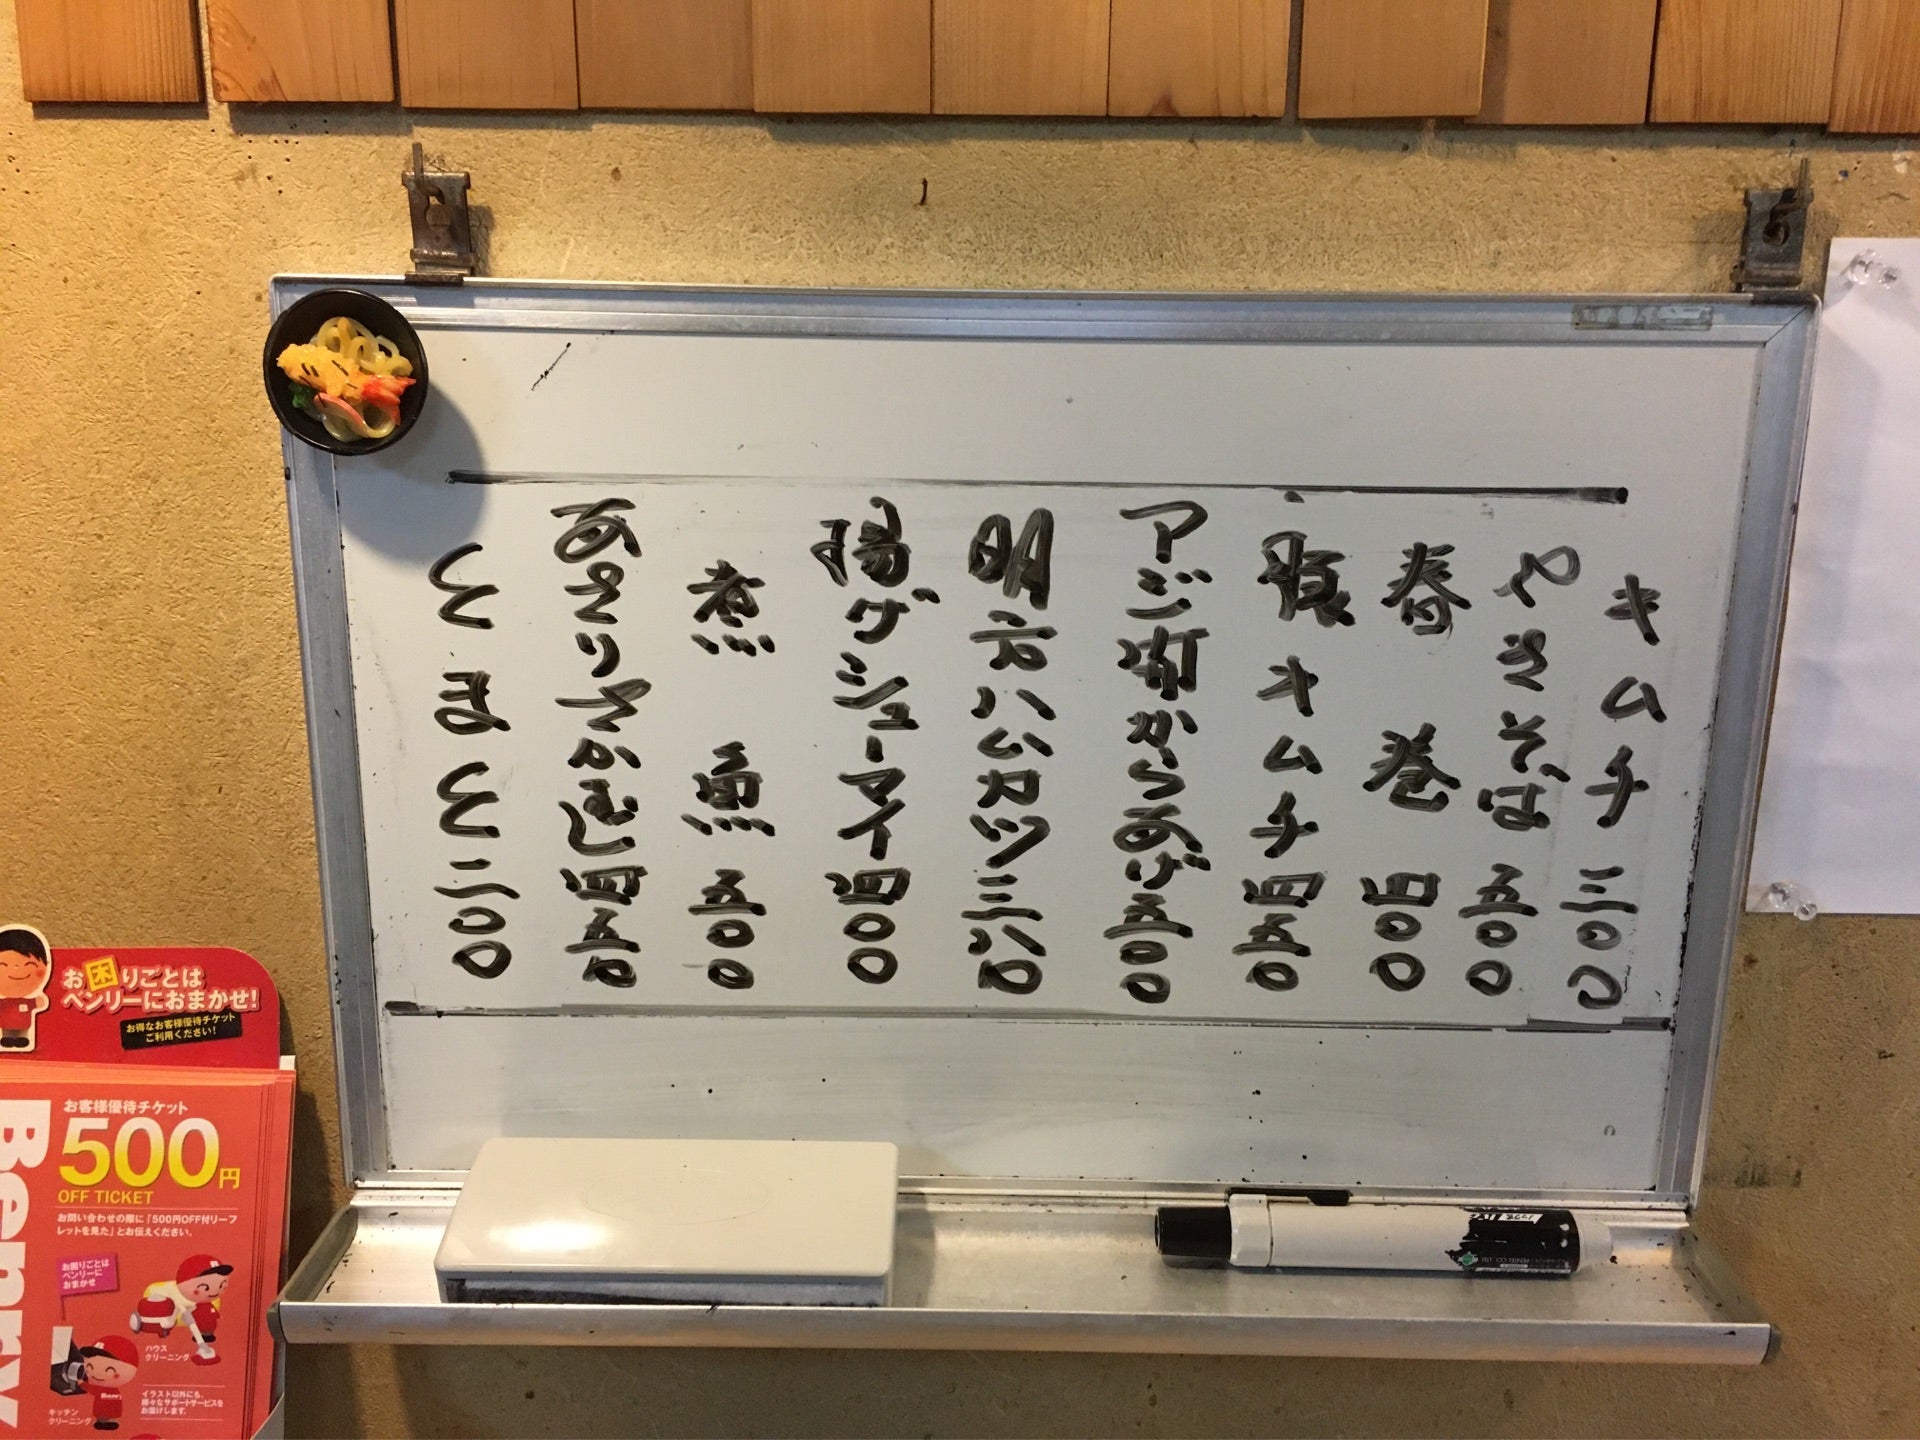 キムチ 三〇〇
やきそば 五〇〇
春巻 四〇〇
豚キムチ 四五〇
アジ南からあげ 五〇〇
明方ハムカツ 三八〇
揚ゲシューマイ 四〇〇
煮魚 五〇〇
あさりさかむし 四五〇
とまと 二〇〇
お困りごとは
ベンリーにおまかせ!
お得なお客様優待チケット
ご利用ください!
お客様優待チケット
500円
OFF TICKET
お問い合わせの際に「500円OFF付リーフ
レットを見た」とお伝えください。
Benry
お困りごとは
ベンリーに
おまかせ
ハウス
クリーニング
キッチン
クリーニング
イラスト以外にも、
様々なサポートサービスを
お届けします。